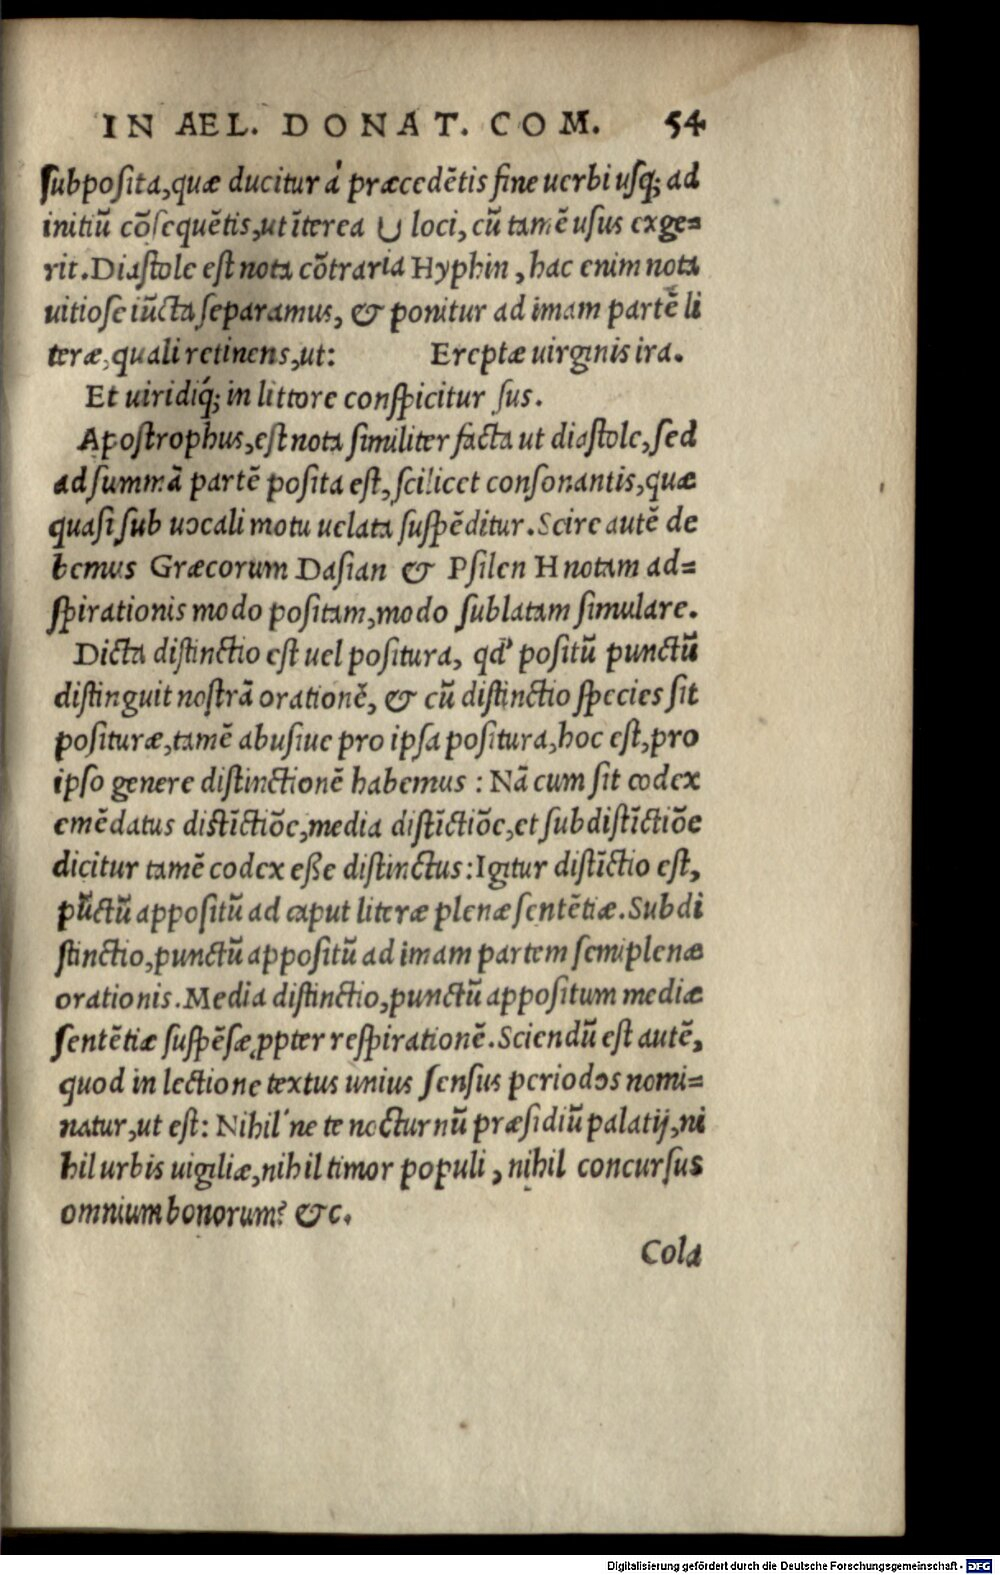 IN AEL. DONAT. COM. 54
subposita, quæ ducitur á præcedẽtis fine uerbi usq; ad
initiũ cõsequẽtis, ut ĩterea ∪ loci, cũ tamẽ usus exge=
rit. Diastole est nota cõtraria Hyphin, hac enim nota
uitiose iũcta separamus, & ponitur ad imam partẽ li
teræ, quali retinens, ut: Ereptæ uirginis ira.
Et uiridiq́; in littore conspicitur sus.
Apostrophus, est nota similiter facta ut diastole, sed
ad summã partẽ posita est, scilicet consonantis, quæ
quasi sub uocali motu uelata suspẽditur. Scire autẽ de
bemus Græcorum Dasian & Psilen H notam ad=
spirationis modo positam, modo sublatam simulare.
Dicta distinctio est uel positura, qd' positũ punctũ
distinguit nostrã orationẽ, & cũ distinctio species sit
posituræ, tamẽ abusiue pro ipsa positura, hoc est, pro
ipso genere distinctionẽ habemus : Nã cum sit codex
emẽdatus distĩctiõe, media distĩctiõe, et subdistĩctiõe
dicitur tamẽ codex eße distinctus: Igitur distĩctio est,
pũctũ appositũ ad caput literæ plenæ sentẽtiæ. Subdi
stinctio, punctũ appositũ ad imam partem semiplenæ
orationis. Media distinctio, punctũ appositum mediæ
sentẽtiæ suspẽsæ ꝓpter respirationẽ. Sciendũ est autẽ,
quod in lectione textus unius sensus periodos nomi=
natur, ut est: Nihil'ne te nocturnũ præsidiũ palatij, ni
hil urbis uigiliæ, nihil timor populi, nihil concursus
omnium bonorum? &c.
Cola
Digitalisierung gefördert durch die Deutsche Forschungsgemeinschaft - DFG